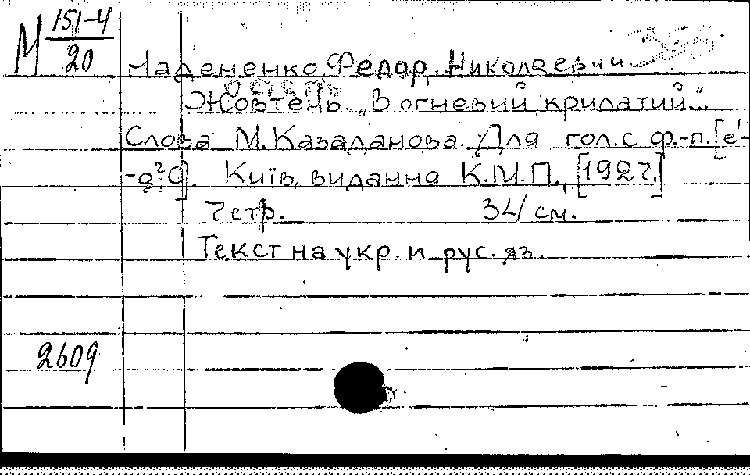 М 151-4
20
Надененко, Федор Николаевич
Жовтень „В огневий крилатий“.
Слова М. Казаданова. Для гол. с ф.-п. [e¹-
-g²]. Київ, видання К.М.П., [1927.]
7 стр. 34 см.
Текст на укр. и рус. яз.
2609